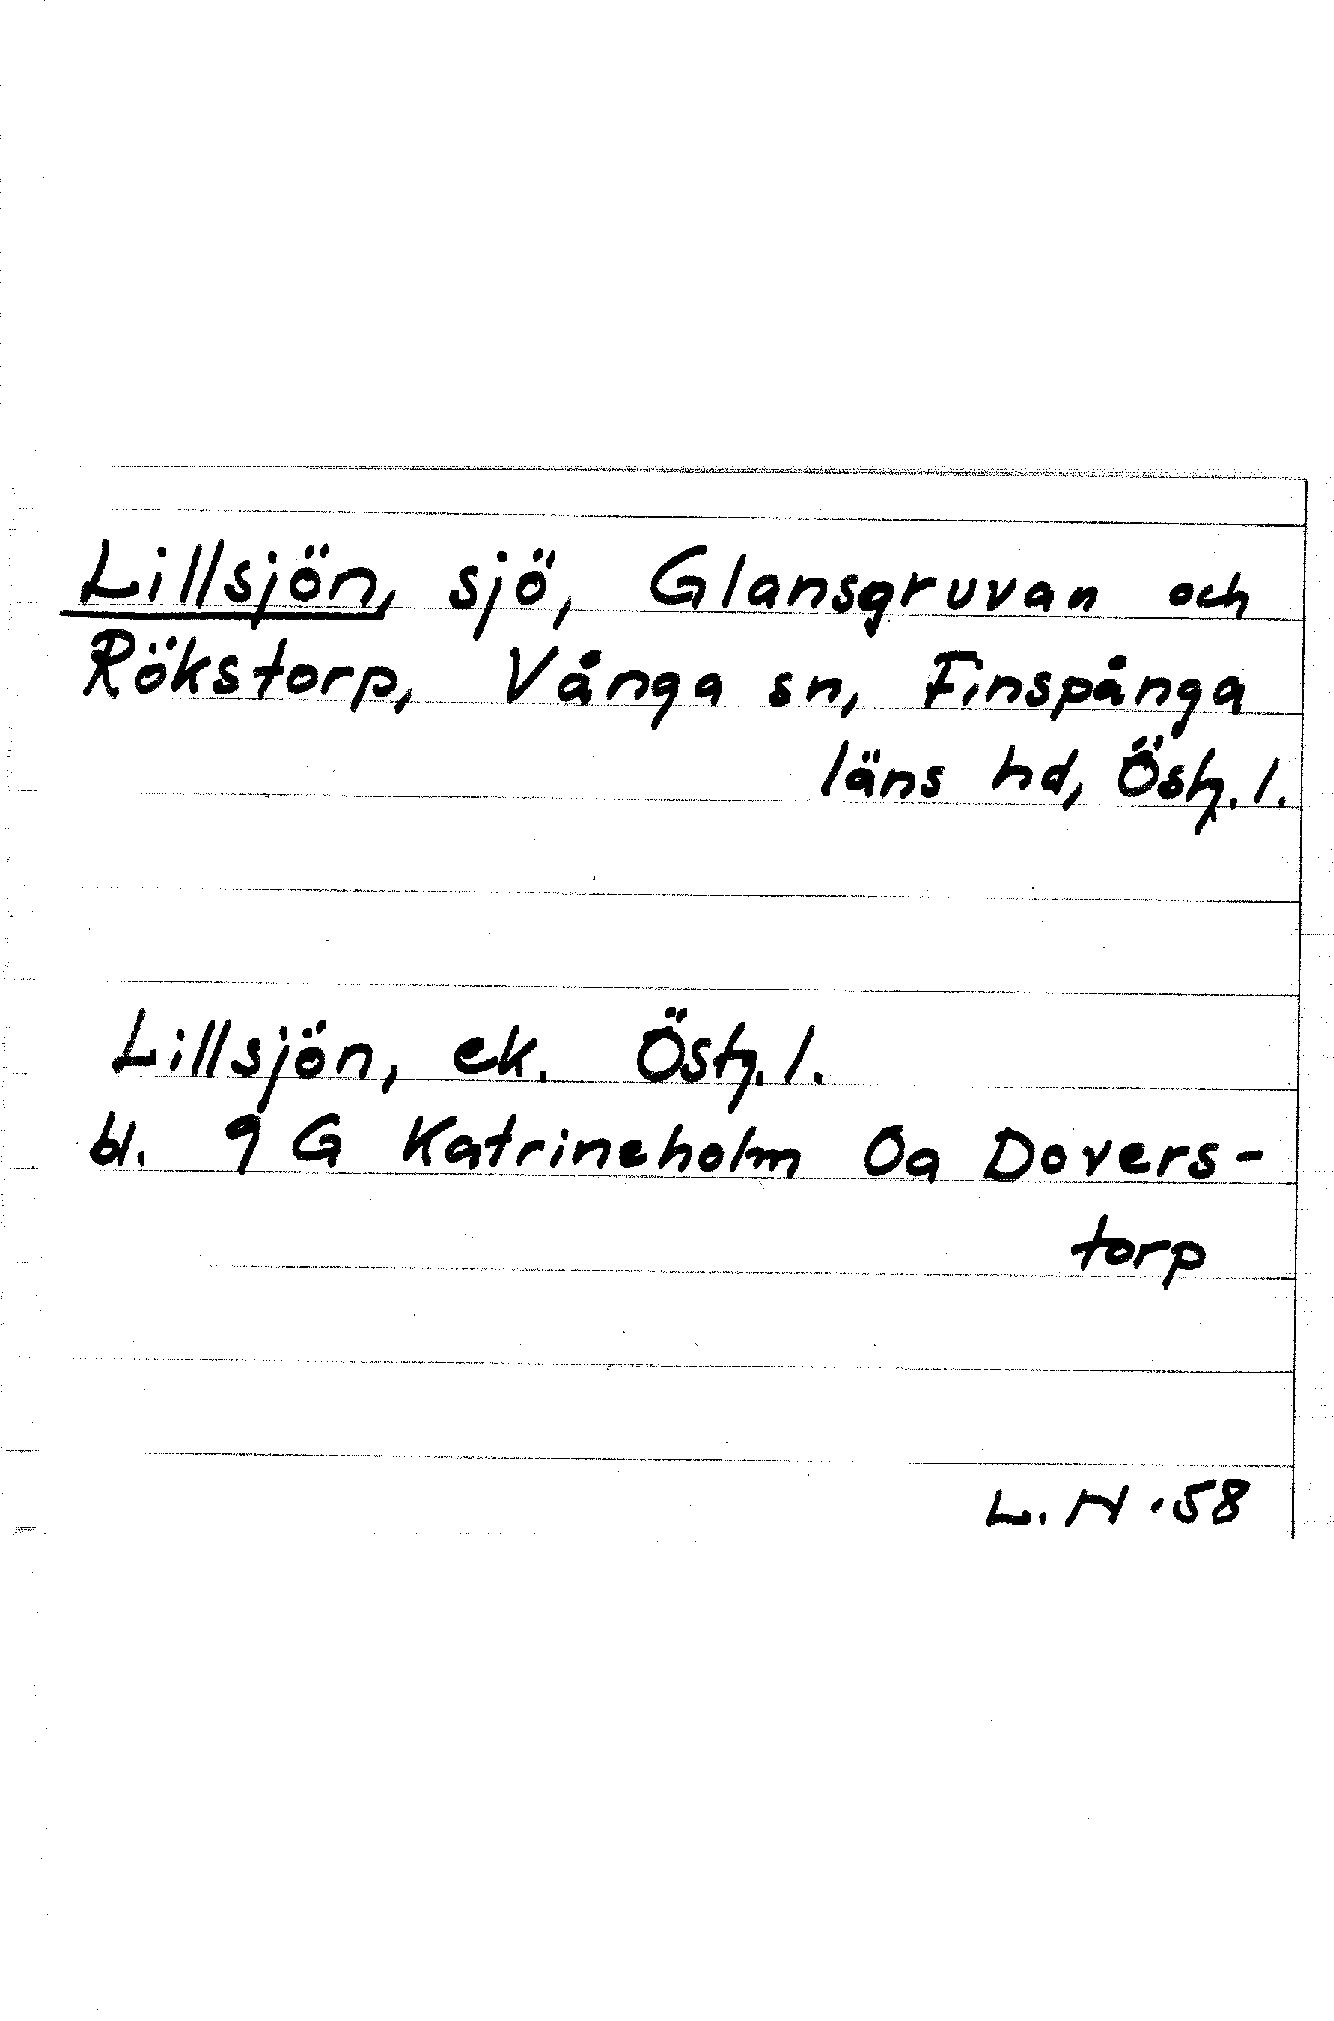 Lillsjön, sjö, Glansgruvan och
Rökstorp, Vånga sn, Finspånga
läns hd, Östg. l.
Lillsjön, ek. Östg. l.
bl. 9 G Katrineholm 0a Dovers-
torp
L. N. 58